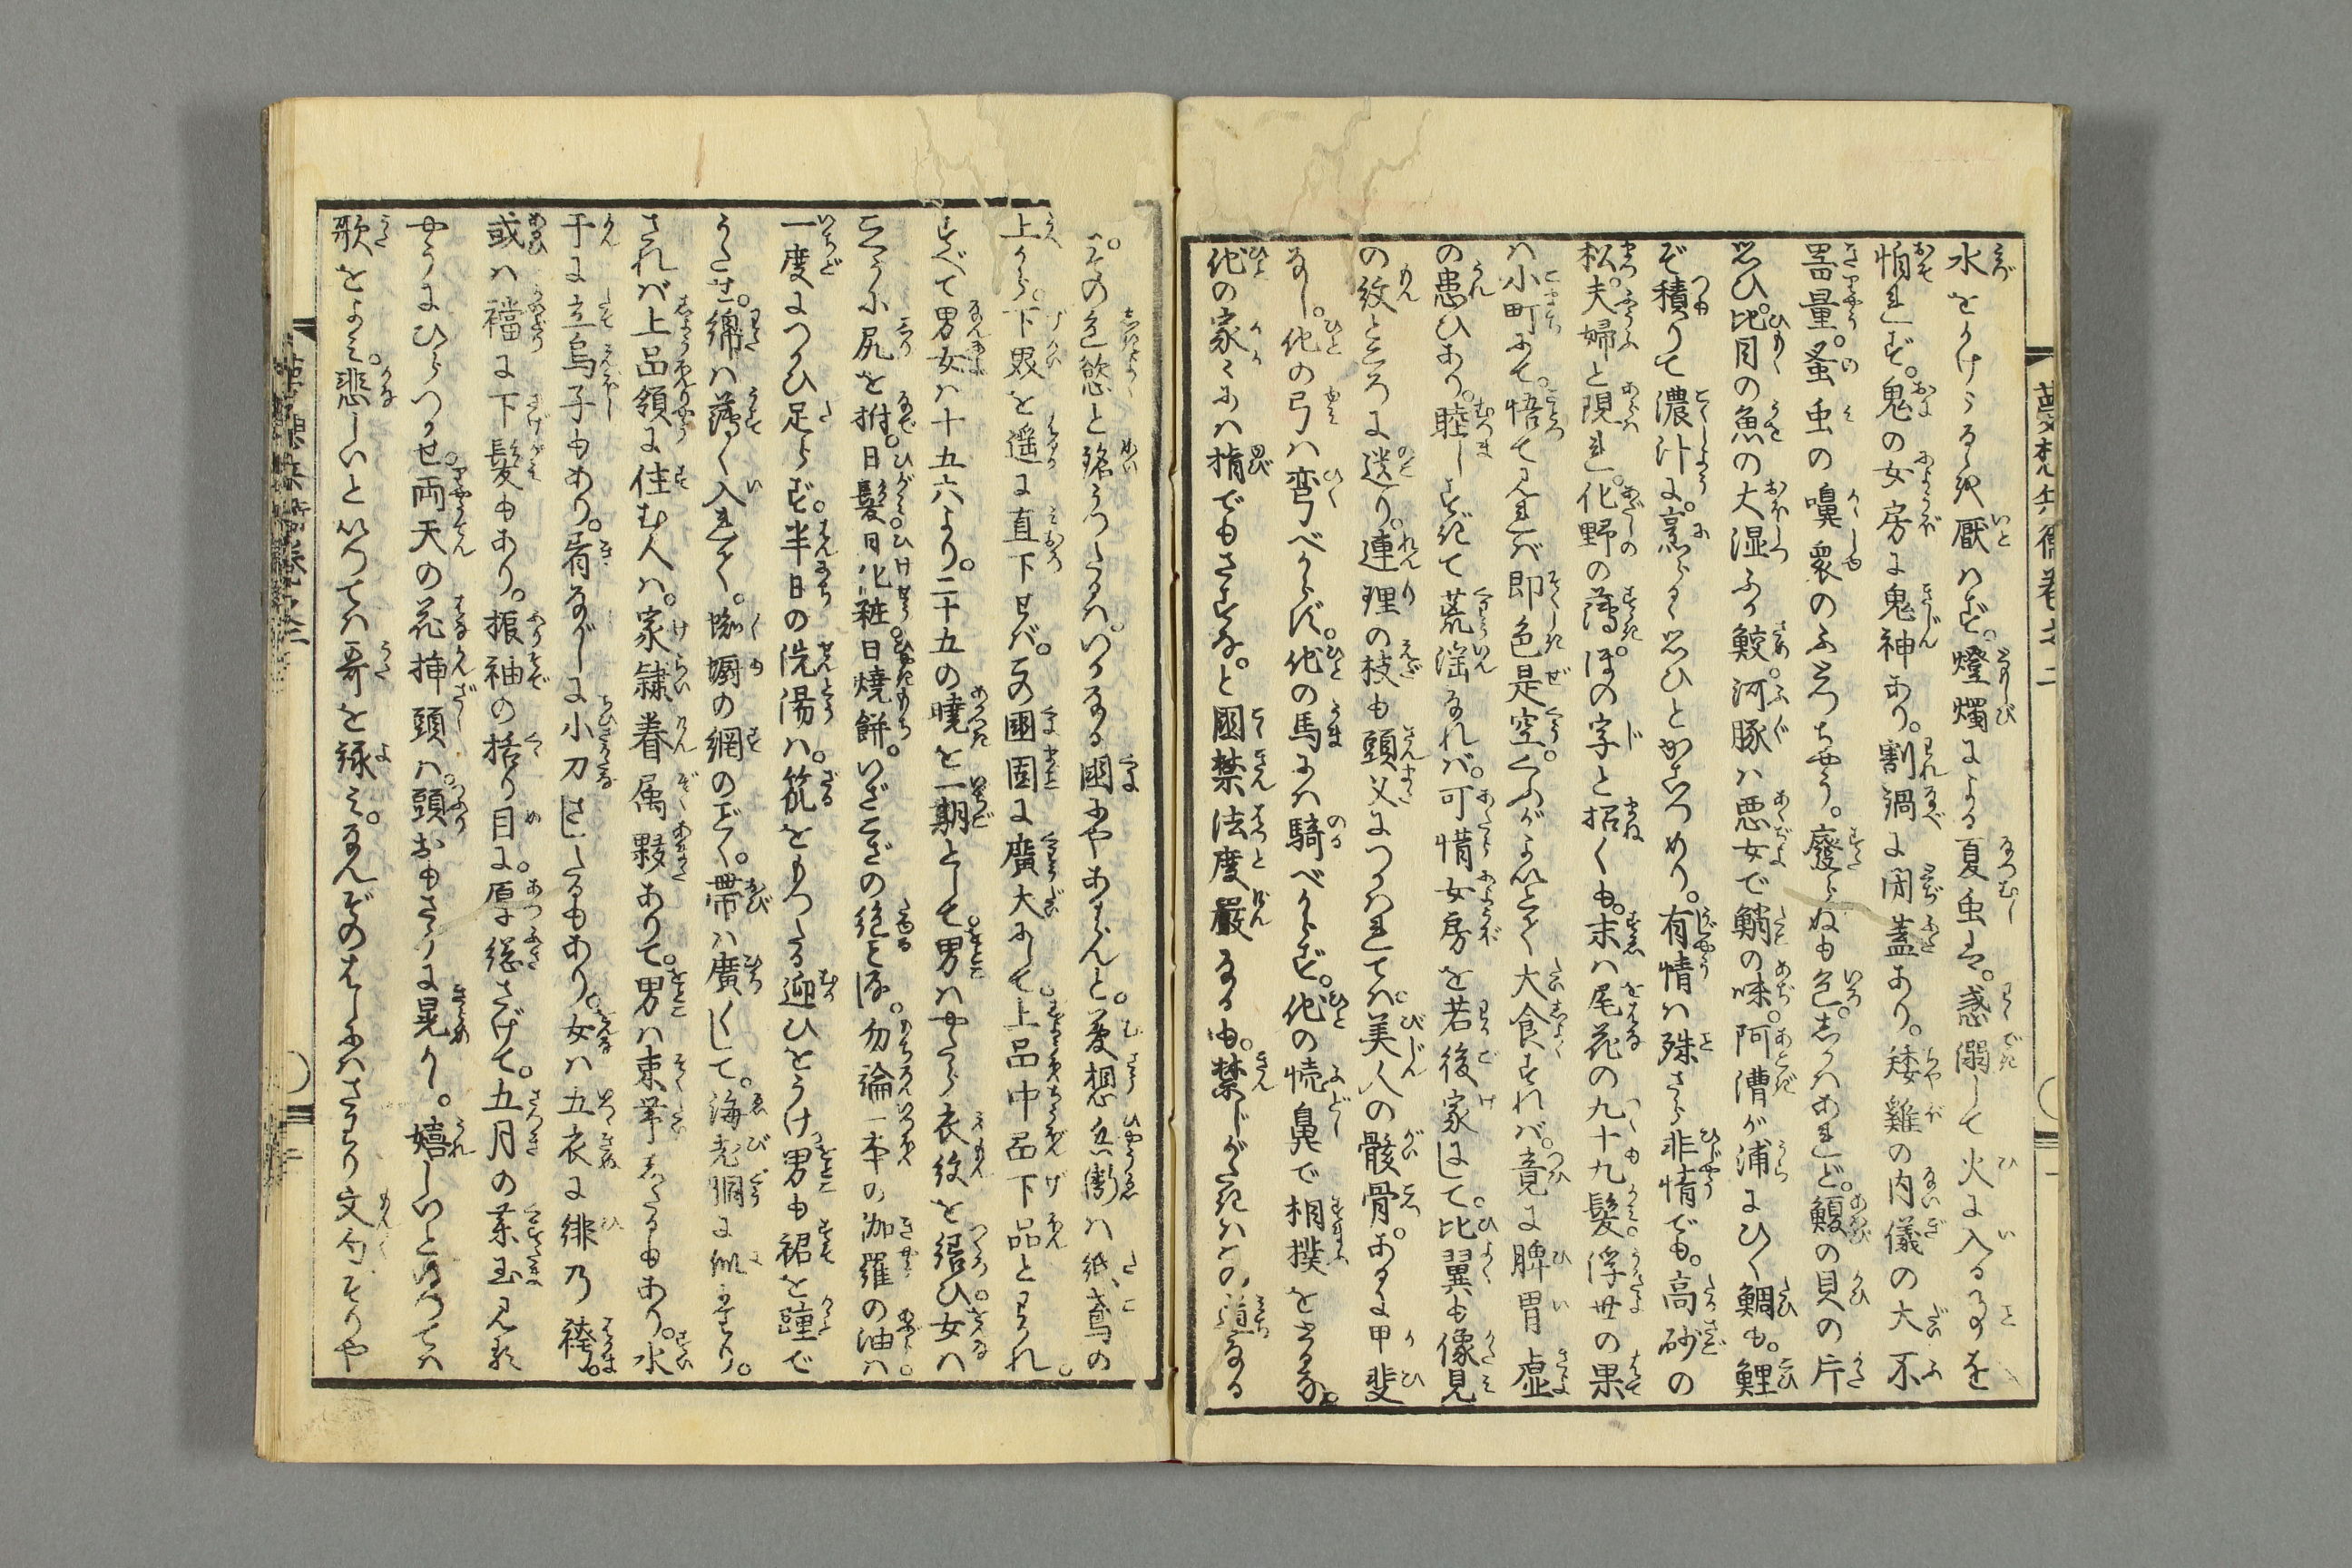 水をかけらるゝを厭はず。燈燭による夏虫は。惑溺して火に入るゝことを
怕れず。鬼の女房に鬼神あり。割鍋に閉蓋あり。矮雞の内儀の大不
器量。蚤虫の嚊衆のふとつちやう。廃らぬも色。しかはあれど。鰒の貝の片
思ひ。比目の魚の大湿ふか鮫。河豚は悪女で鮹の味。阿漕が浦にひく鯛も。鯉
ぞ積りて濃汁に。烹らるゝ思ひとかこつめり。有情は殊さら非情でも。高砂の
松。夫婦と現れ。化野の薄。ほの字と招くも。末は尾花の九十九髪。浮世の果
は小町にて。悟て見れば即色是空。くふがよいとて大食すれば。竟に脾胃虚
の患ひあり。睦しすぎて荒淫なれば。可惜女房を若後家にして。比翼も像見
の紋ところに遺り。連理の枝も頭父につかはれては。美人の骸骨。あるに甲斐
なし。他の弓は弯べからず。他の馬には騎べからず。他の犢鼻で相撲をとるな。
他の家々には指でもさすな。と国禁法度厳なるも。禁じがたきはこの道なる
。その色慾と銘うつたるは。いかなる国にやあらんと。夢想兵衛は紙鳶の
上から。下界を遥に直下せば。この国園に広大にして。上品中品下品とわかれ。
すべて男女は十五六より。二十五の暁を一期として。男はやたら衣紋を繕ひ女は
むかふ尻を拊。日髪。日化粧。日焼餅。いざこざの絶る日なし。勿論一本の伽羅の油は
一度につかひ足らず。半日の洗湯は。笊をもつたる迎ひをうけ男も裙を踵で
うたせ。綿は薄く入れて。蜘蛛の網のごとく。帯は広くして。海老胴に似たり。
されば上品領に住む人は。家隷眷属夥ありて。男は束帯したるもあり。水
干に立烏子もあり。肩ながしに小刀さしたるもあり。女は五衣に緋乃袴。
或は襠に下髪もあり。振袖の括り目に。厚総さげて。五月の薬玉見え
やうにひらつかせ。両天の花挿頭は。頭おもさうに晃めかし。嬉しいといつては
歌をよみ。悲しいといつては哥を詠み。なんぞのはしにはさはり文句そりや
夢想兵衛巻之二